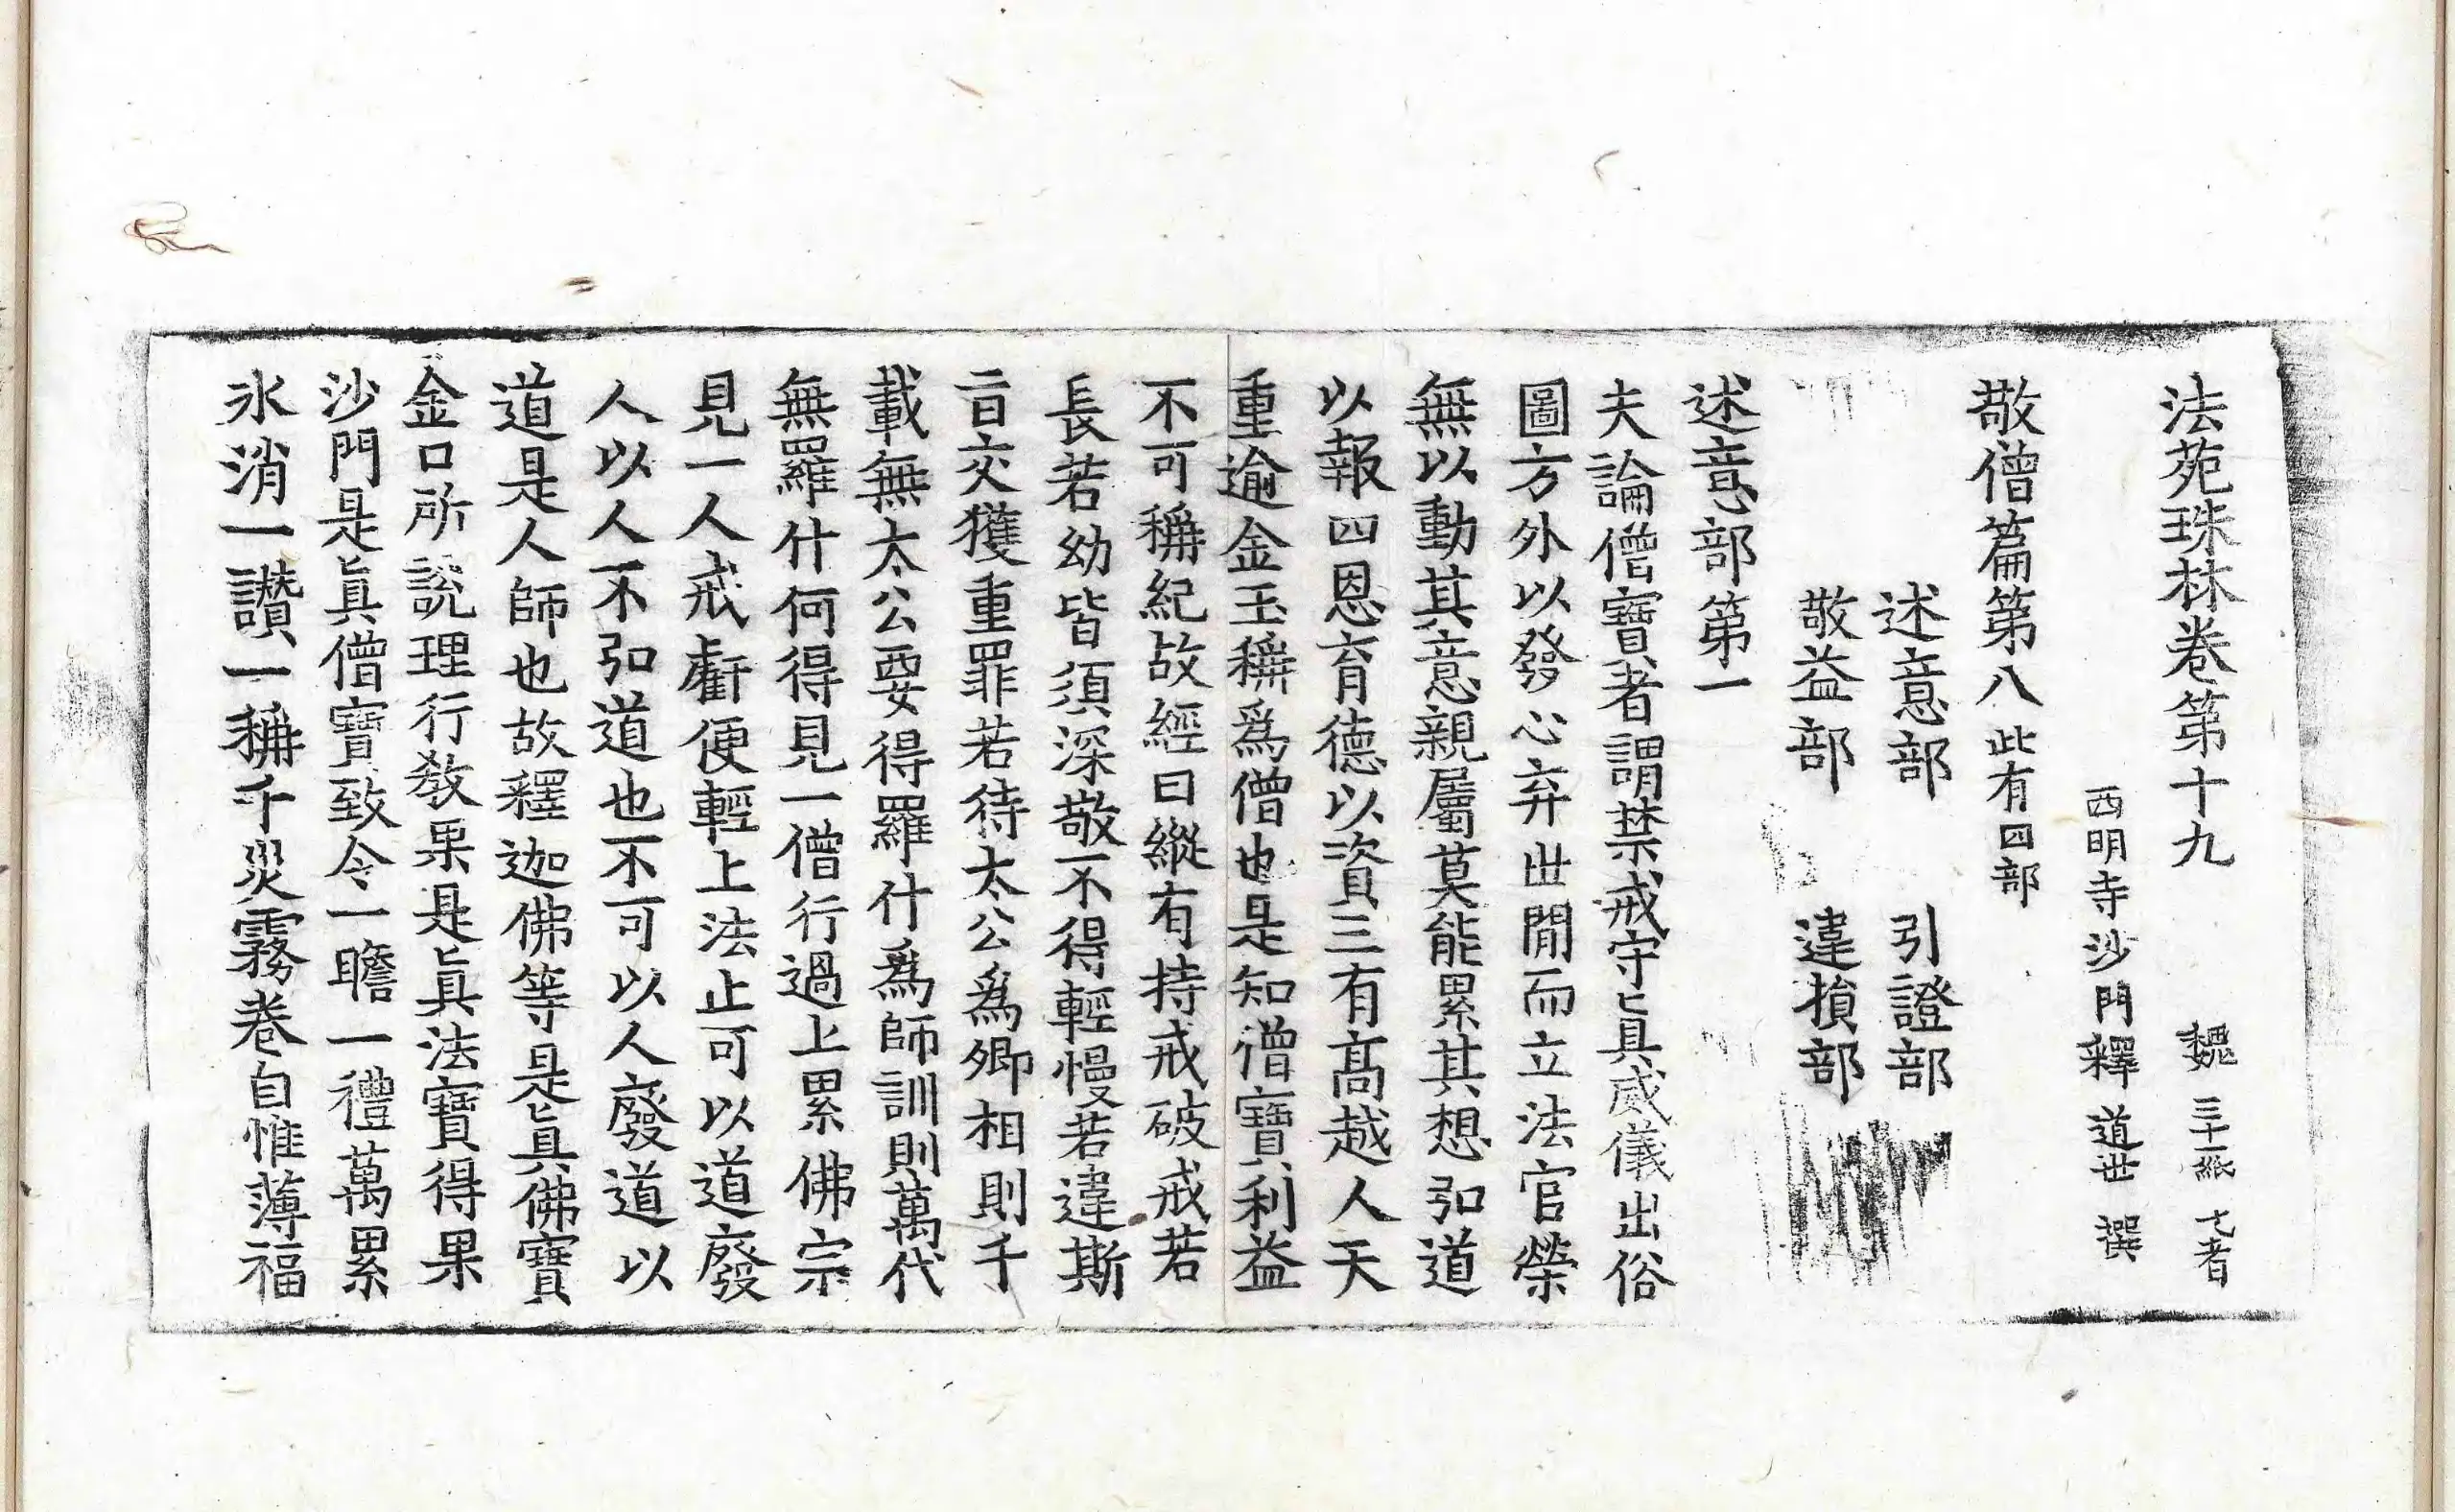 法苑珠林卷第十九 魏 三十二紙 七者
西明寺沙門釋道世 撰
敬僧篇第八此有四部
述意部 引證部
敬益部 違損部
述意部第一
夫論僧寶者謂禁戒守眞威儀出俗
圖方外以發心弃世閒而立法官榮
無以動其意親屬莫能累其想弘道
以報四恩育德以資三有高越人天
重逾金玉稱爲僧也是知僧寶利益
不可稱紀故經曰縱有持戒破戒若
長若幼皆須深敬不得輕慢若違斯
旨交獲重罪若待太公爲卿相則千
載無太公要得羅什爲師訓則萬代
無羅什何得見一僧行過上累佛宗
見一人戒虧便輕上法止可以道廢
人以人不弘道也不可以人廢道以
道是人師也故釋迦佛等是眞佛寶
金口所說理行教果是眞法寶得果
沙門是眞僧寶致令一瞻一禮萬累
氷消一讚一稱千災霧卷自惟薄福